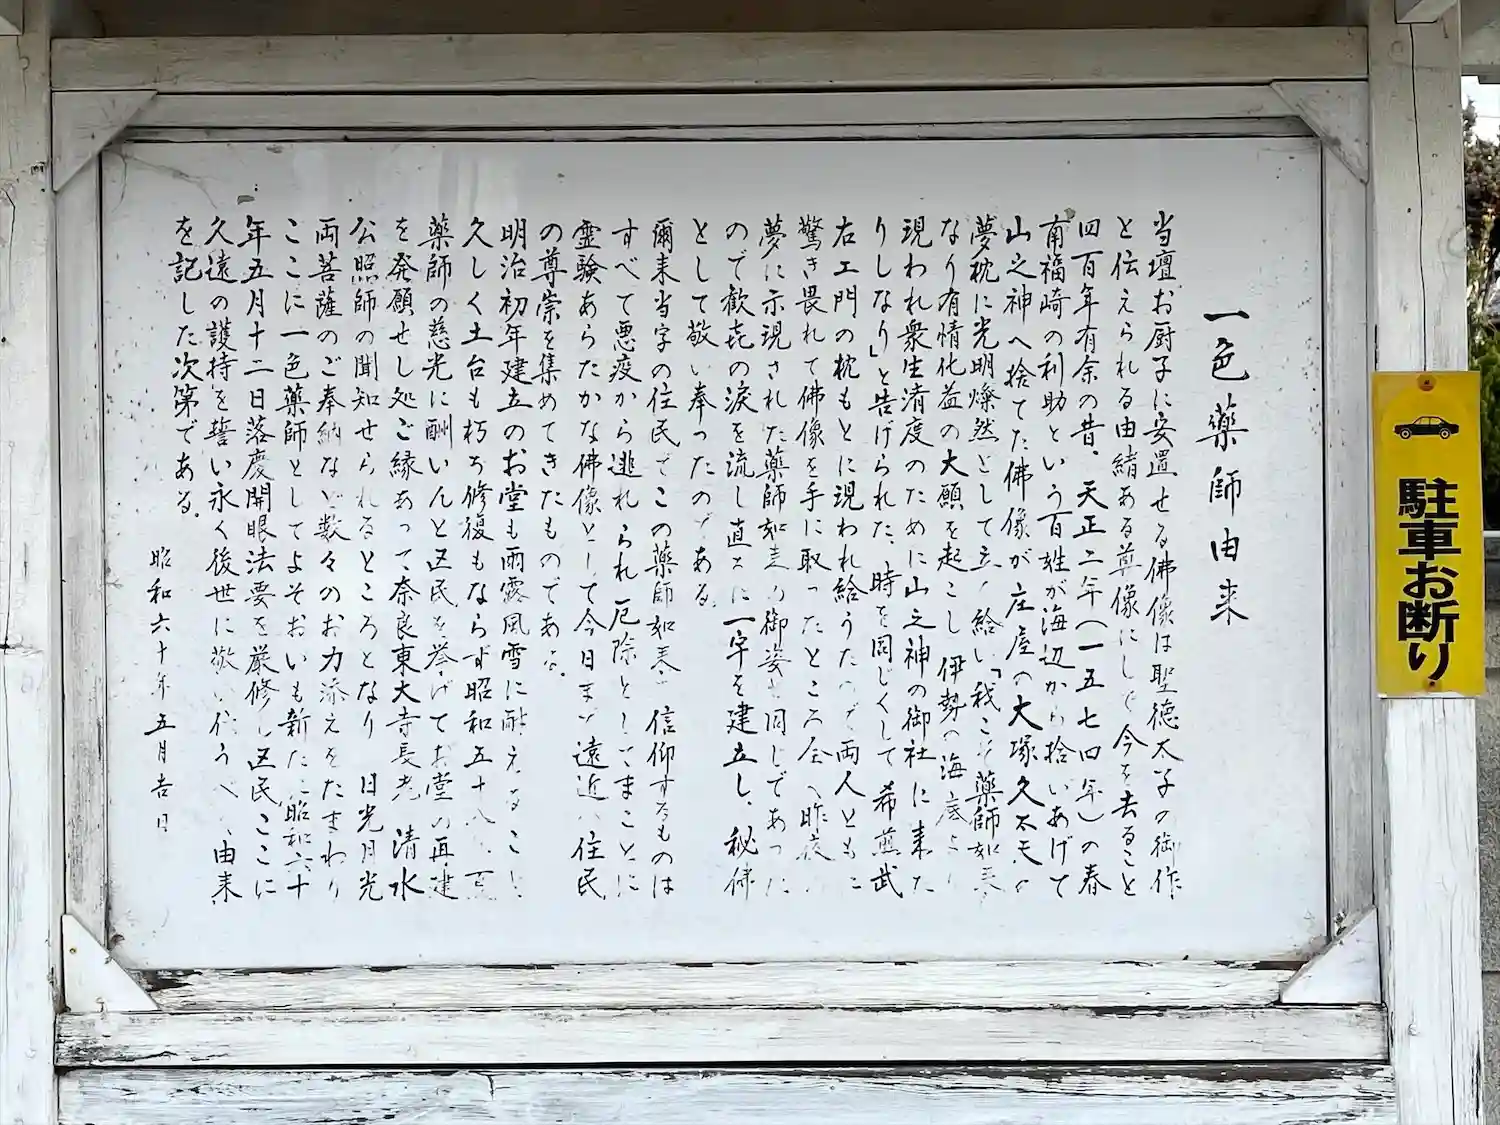 一色薬師由来
当壇お厨子に安置せる佛像は聖徳太子の御作
と伝えられる由緒ある尊像にして今を去ること
四百年有余の昔、天正二年(一五七四年)の春
南福崎の利助という百姓が海辺から拾いあげて
山之神へ捨てた佛像が庄屋の大塚久太夫の
夢枕に光明燦然として立ち給い「我こそ薬師如来
なり有情化益の大願を起こし伊勢の海底より
現われ衆生済度のために山之神の御社に来た
りしなり」と告げられた、時を同じくして希煎武
右エ門の枕もとに現われ給うたので両人ともに
驚き畏れて佛像を手に取ったところ全く昨夜の
夢に示現された薬師如来の御姿と同じであった
ので歓㐂の涙を流し直ちに一宇を建立し、秘佛
として敬い奉ったのである
爾来当字の住民でこの薬師如来を信仰するものは
すべて悪疫から逃れられ厄除としてまことに
霊験あらたかな佛像として今日まで遠近の住民
の尊崇を集めてきたものである.
明治初年建立のお堂も雨露風雪に耐えること
久しく土台も朽ち修復もならず昭和五十八
薬師の慈光に酬いんと区民を挙げてお堂の再建
を発願せし処ご縁あって奈良東大寺長老 清水
公照師の聞知せられるところとなり 日光月光
両菩薩のご奉納など数々のお力添えをたまわり
ここに一色薬師としてよそおいも新たに昭和六十
年五月十二日落慶開眼法要を厳修し区民ここに
久遠の護持を誓い永く後世に敬い 由来
を記した次第である.
昭和六十年五月吉日
駐車お断り